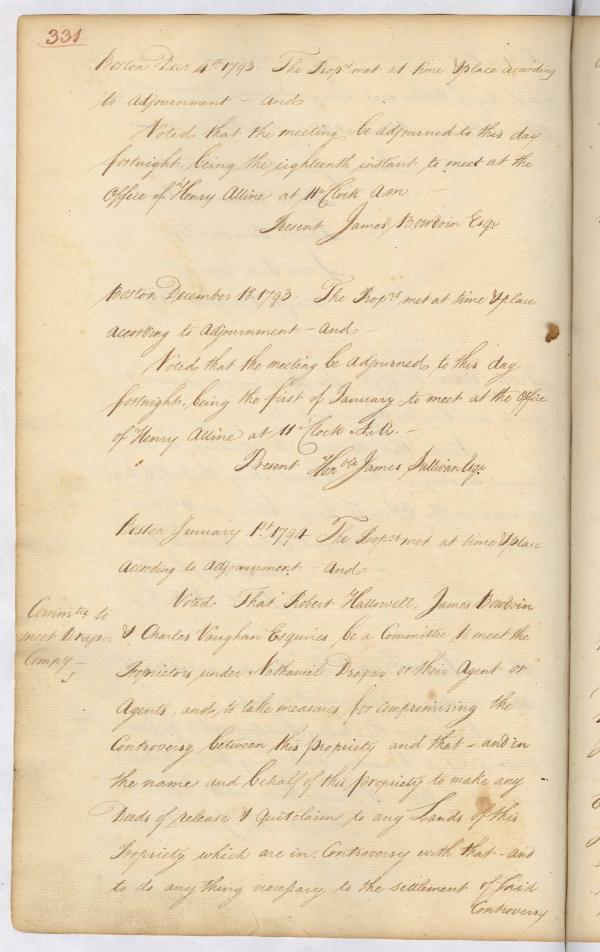 331
Boston Decr 4th 1793 - The Proprs met at time & place according
to adjournment - and
Voted that the meeting be adjourned to this day
fortnight, being the eighteenth instant, to meet at the
Office of Henry Alline at 11 o'Clock A.M. -
Present James Bowdoin Esqr
Boston December 18. 1793 - The Proprs met at time & place
according to adjournment - and -
Voted that the meeting be adjourned to this day
fortnight, being the first of January, to meet at the office
of Henry Alline at 11 o'Clock A.M. -
Present Honble James Sullivan Esqr
Boston January 1st 1794 The Proprs met at time & place
according to adjournment - and -
Voted That Robert Hallowell, James Bowdoin
Committee to
meet Draper
Compy -
& Charles Vaughan Esquires be a Committee to meet the
Proprietors under Nathaniel Draper or their Agent or
Agents, and to take measures for compromising the
Controversy between this propriety and that - and in
the name and behalf of this propriety to make any
Deeds of release & Quitclaim to any Lands of this
Propriety which are in Controversy with that - and
to do any thing necessary to the settlement of said
Controversy